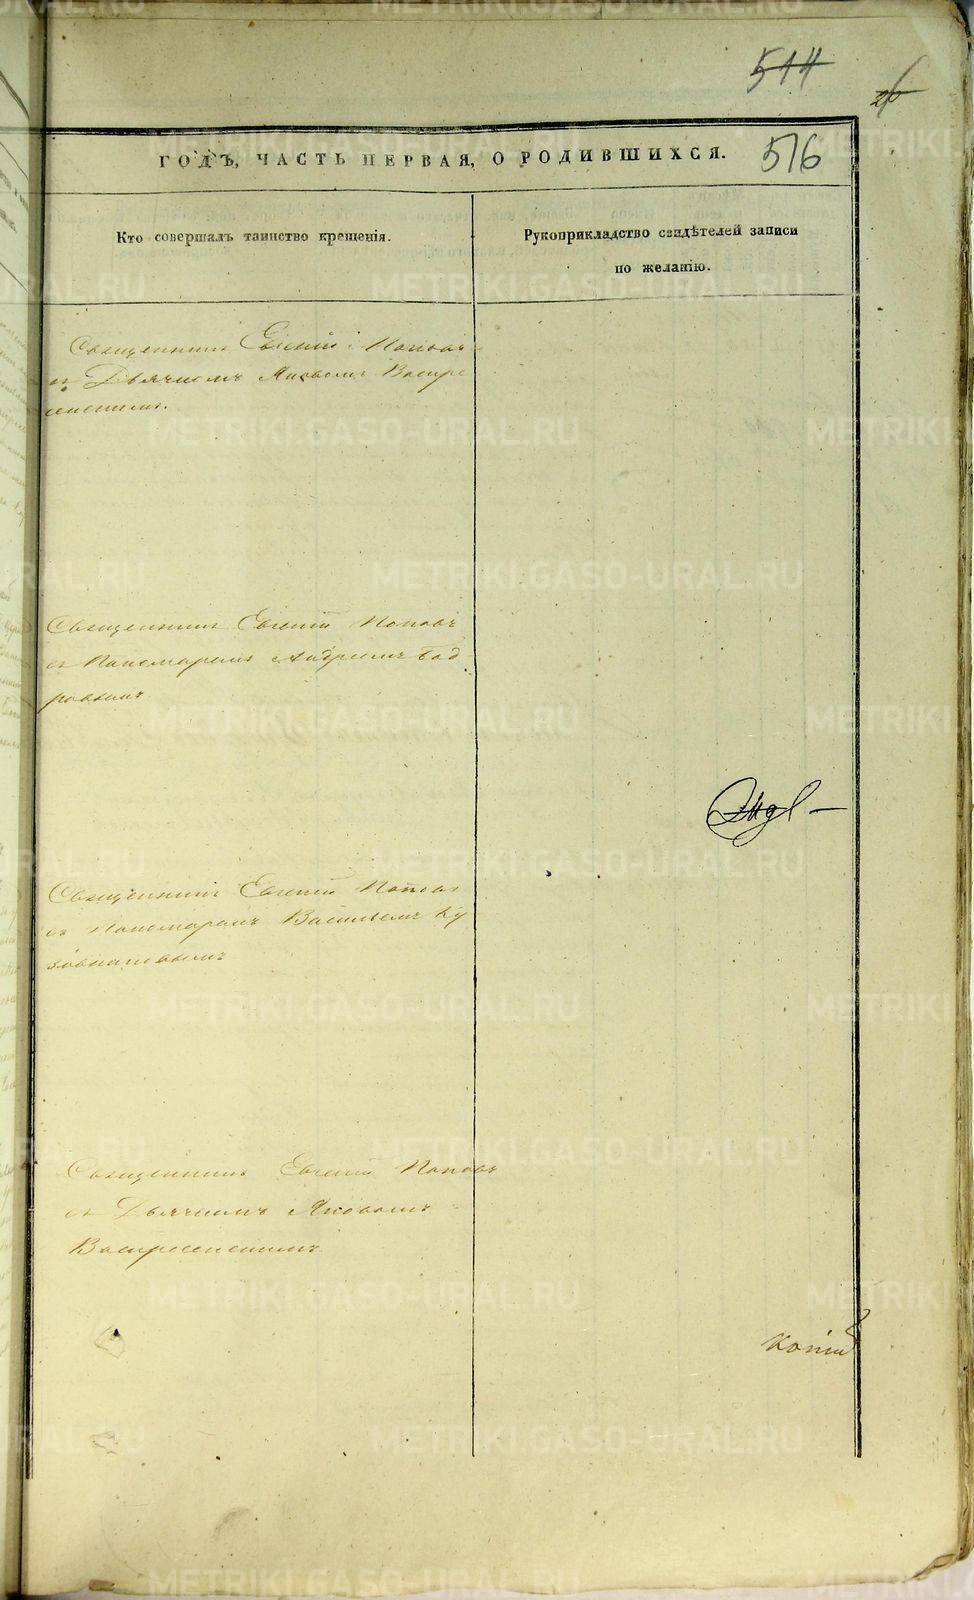 514
26
ГОДЪ, ЧАСТЬ ПЕРВАЯ, О РОДИВШИХСЯ.
516
Кто совершалъ таинство крещенія.
Рукоприкладство свидѣтелей записи
по желанію.
Священникъ Евгеній Поповъ
съ Дьячкомъ Яковомъ Воскре
сенскимъ.
Священникъ Евгеній Поповъ
съ Пономаремъ Андреемъ Бад
ровымъ
Священникъ Евгеній Поповъ
съ Пономаремъ Васильемъ Ку
зовниковымъ
Священникъ Евгеній Поповъ
съ Дьячкомъ Яковомъ
Воскресенскимъ.
METRIKI.GASO-URAL.RU